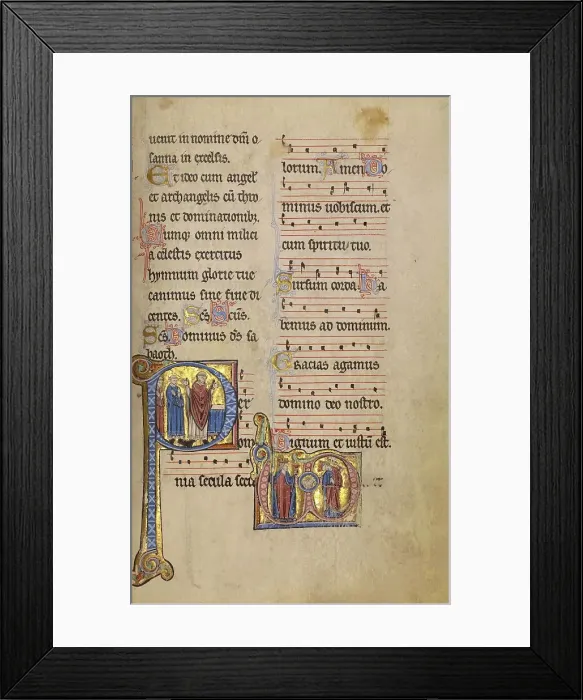 uenit in nomine dm̄ o
sanna in excelsis.
Et ideo cum angel
et archangelis cū thro
nis et dominationibꝫ.
Cumqꝫ omni milici
a celestis exercitus
hymnum glorie tue
canimus sine fine di
centes. Scs̄ Scūs.
Scs̄ Dominus ds̄ sa
baoth.
P er
om
nia secula secu
lorum. Amen Do
minus uobiscum. et
cum spiritu tuo.
Sursum corda. Ha
bemus ad dominum.
Gracias agamus
domino deo nostro.
Dignum et iustū est.